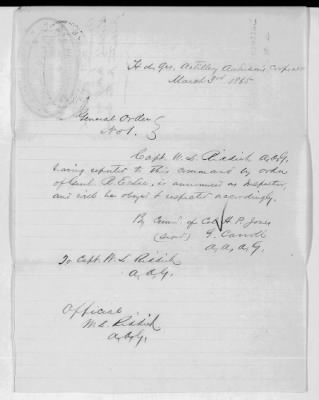 Hd. Qrs. Artillery Anderson's Corps
March 3rd 1865
General Order
No 1.
Capt. W. S. Riddick A.A.G.
having reported to this command by order
of Genl. R. E. Lee, is announced as Inspector
and will be obeyed & respected accordingly.
By Comd. of Col H. P. Jones
(Signed)
A. A. A. G.
To Capt. W. S. Riddick
A. A. G.
Official
W. S. Riddick
A. A. G.